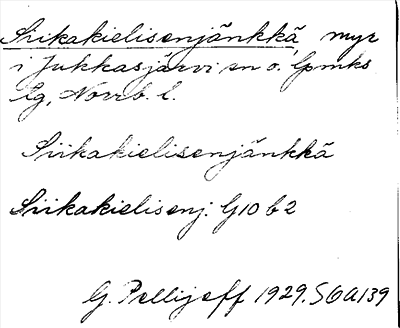 Siikakielisenjänkkä, myr
i Jukkasjärvi sn o. lpmks
lg, Norrb. l.
Siikakielisenjänkkä
Siikakielisenj. G10 b2
G. Pellijeff 1929. SOA139